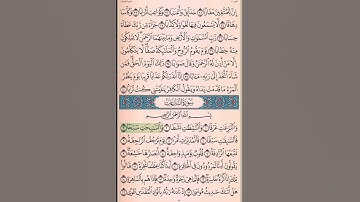 إِنَّ لِلْمُتَّقِينَ مَفَازًا ٣١ حَدَآئِقَ وَأَعْنَٰبًا ٣٢ وَكَوَاعِبَ أَتْرَابًا ٣٣ وَكَأْسًا
دِهَاقًا ٣٤ لَّا يَسْمَعُونَ فِيهَا لَغْوًا وَلَا كِذَّٰبًا ٣٥ جَزَآءً مِّن رَّبِّكَ عَطَآءً
حِسَابًا ٣٦ رَّبِّ ٱلسَّمَٰوَٰتِ وَٱلْأَرْضِ وَمَا بَيْنَهُمَا ٱلرَّحْمَٰنِ لَا يَمْلِكُونَ
مِنْهُ خِطَابًا ٣٧ يَوْمَ يَقُومُ ٱلرُّوحُ وَٱلْمَلَٰٓئِكَةُ صَفًّا لَّا يَتَكَلَّمُونَ
إِلَّا مَنْ أَذِنَ لَهُ ٱلرَّحْمَٰنُ وَقَالَ صَوَابًا ٣٨ ذَٰلِكَ ٱلْيَوْمُ ٱلْحَقُّ فَمَن
شَآءَ ٱتَّخَذَ إِلَىٰ رَبِّهِۦ مَـَٔابًا ٣٩ إِنَّآ أَنذَرْنَٰكُمْ عَذَابًا قَرِيبًا يَوْمَ يَنظُرُ
ٱلْمَرْءُ مَا قَدَّمَتْ يَدَاهُ وَيَقُولُ ٱلْكَافِرُ يَٰلَيْتَنِى كُنتُ تُرَٰبًۢا ٤٠
سُورَةُ النَّازِعَاتِ
بِسْمِ ٱللَّهِ ٱلرَّحْمَٰنِ ٱلرَّحِيمِ
وَٱلنَّٰزِعَٰتِ غَرْقًا ١ وَٱلنَّٰشِطَٰتِ نَشْطًا ٢ وَٱلسَّٰبِحَٰتِ سَبْحًا ٣
فَٱلسَّٰبِقَٰتِ سَبْقًا ٤ فَٱلْمُدَبِّرَٰتِ أَمْرًا ٥ يَوْمَ تَرْجُفُ ٱلرَّاجِفَةُ ٦
تَتْبَعُهَا ٱلرَّادِفَةُ ٧ قُلُوبٌ يَوْمَئِذٍ وَاجِفَةٌ ٨ أَبْصَٰرُهَا خَٰشِعَةٌ ٩
يَقُولُونَ أَءِنَّا لَمَرْدُودُونَ فِى ٱلْحَافِرَةِ ١٠ أَءِذَا كُنَّا عِظَٰمًا نَّخِرَةً ١١ قَالُوا۟
تِلْكَ إِذًا كَرَّةٌ خَاسِرَةٌ ١٢ فَإِنَّمَا هِىَ زَجْرَةٌ وَٰحِدَةٌ ١٣ فَإِذَا هُم بِٱلسَّاهِرَةِ ١٤
هَلْ أَتَىٰكَ حَدِيثُ مُوسَىٰٓ ١٥ إِذْ نَادَىٰهُ رَبُّهُۥ بِٱلْوَادِ ٱلْمُقَدَّسِ طُوًى ١٦